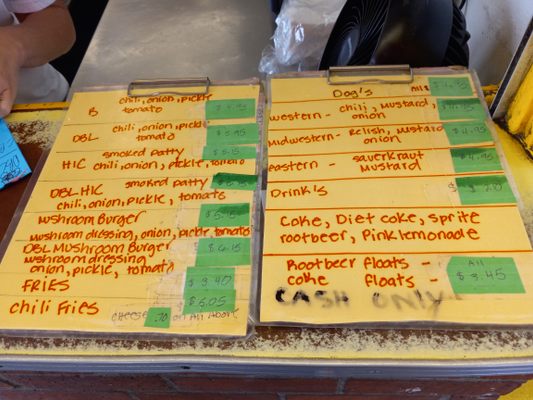 B chili, onion, pickle
tomato $4.95
DBL chili, onion, pickle
tomato $5.95
smoked patty $5.15
HIC chili, onion, pickle, tomato
DBL HIC smoked patty
chili, onion, pickle, tomato
Mushroom Burger $5.15
mushroom dressing, onion, pickle tomato
DBL Mushroom Burger $6.15
mushroom dressing
onion, pickle, tomato
FRIES $3.40
Chili Fries $6.05
CHEESE .70 on All Above
Dog's All $
western - chili, mustard,
onion
midwestern - Relish, mustard
onion
eastern - sauerkraut $4.95
mustard
Drink's
Coke, Diet coke, sprite
rootbeer, Pink lemonade
Rootbeer floats - All
coke floats - $3.45
CASH ONLY